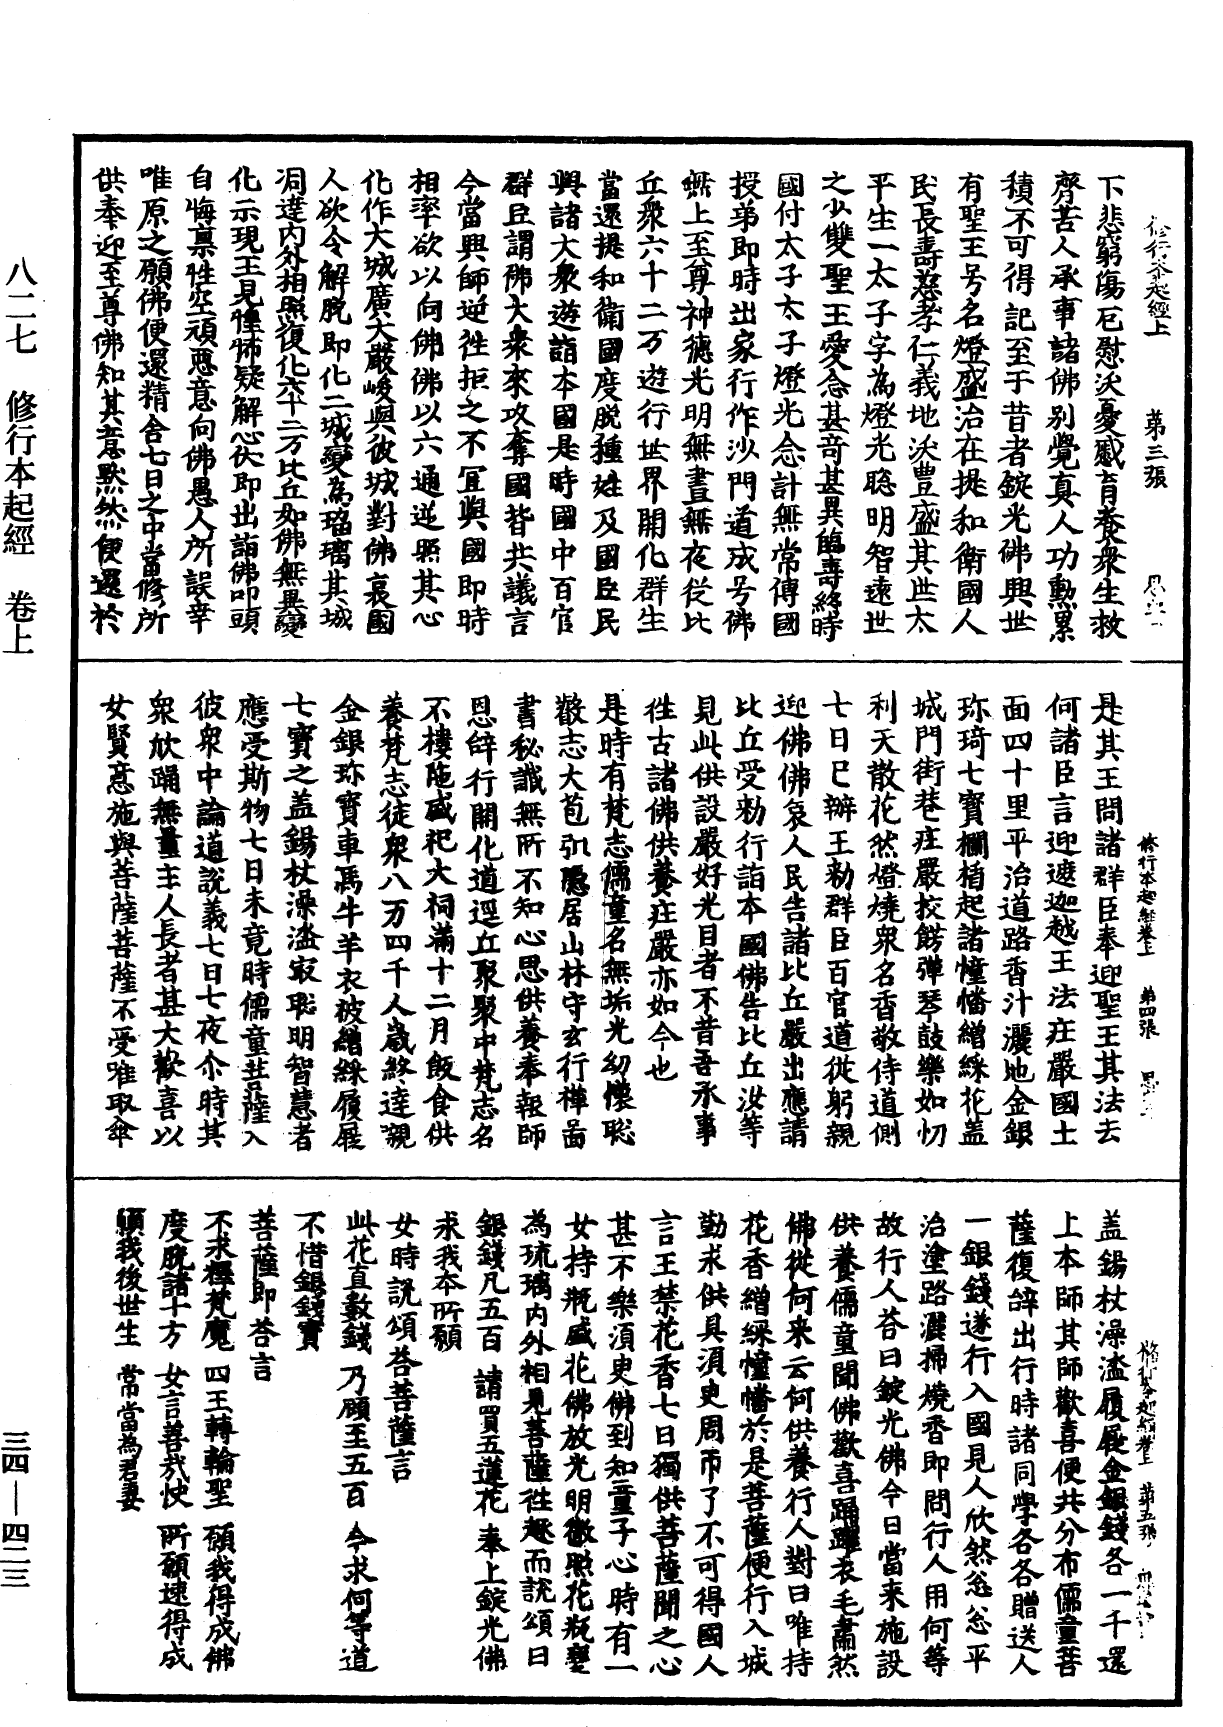 八二七　修行本起經　卷上
三四—四二三
修行本起經上　第三張
下悲窮傷厄慰沃憂慼育養衆生救
齊苦人承事諸佛别覺真人功勳累
積不可得記至于昔者錠光佛興世
有聖王号名燈盛治在提和衛國人
民長壽慈孝仁義地沃豊盛其世太
平生一太子字為燈光聡明智遠世
之少雙聖王愛念甚竒甚異臨壽終時
國付太子太子燈光念計無常傳國
授弟即時出家行作沙門道成号佛
無上至尊神德光明無晝無夜従比
丘衆六十二万遊行世界開化群生
當還提和衛國度脫種姓及國臣民
與諸大衆遊詣本國是時國中百官
群臣謂佛大衆來攻奪國皆共議言
今當興師逆往拒之不宜與國即時
相率欲以向佛佛以六通逆照其心
化作大城廣大嚴峻與彼城對佛哀國
人欲令解脫即化二城變為瑠璃其城
洞達内外相照復化六十二万比丘如佛無異變
化示現王見惶怖疑解心伏即出詣佛叩頭
自悔禀性空頑惡意向佛愚人所誤幸
唯原之願佛便還精舍七日之中當修所
供奉迎至尊佛知其意默然便還於
修行本起經卷上　第四張　思
是其王問諸群臣奉迎聖王其法去
何諸臣言迎遮迦越王法庄嚴國土
面四十里平治道路香汁灑地金銀
珎琦七寳欄楯起諸幢幡繒綵花盖
城門街巷庄嚴挍餝彈琴鼓樂如忉
利天散花然燈燒衆名香敬侍道側
七日已辦王勑群臣百官道従躬親
迎佛佛哀人民告諸比丘嚴出應請
比丘受勑行詣本國佛告比丘汝等
見此供設嚴好光目者不昔吾承事
徃古諸佛供養庄嚴亦如今也
是時有梵志儒童名無垢光幼懷聡
叡志大苞弘隱居山林守玄行禪啚
書秘讖無所不知心思供養奉報師
恩辝行開化道逕丘聚聚中梵志名
不樓陁盛祀大祠滿十二月飯食供
養梵志徒衆八万四千人歲終達嚫
金銀珎寳車馬牛羊衣被繒綵履屣
七寳之盖錫杖澡灌寂聡明智慧者
應受斯物七日未竟時儒童菩薩入
彼衆中論道說義七日七夜尒時其
衆欣踊無量主人長者甚大歡喜以
女賢意施與菩薩菩薩不受唯取傘
修行本起經卷上　第五張
盖錫杖澡灌履屣金銀錢各一千還
上本師其師歡喜便共分布儒童菩
薩復辝出行時諸同學各各贈送人
一銀錢遂行入國見人欣然忩忩平
治塗路灑掃燒香即問行人用何等
故行人荅曰錠光佛今日當来施設
供養儒童聞佛歡喜踊躍衣毛肅然
佛従何来云何供養行人對曰唯持
花香繒綵幢幡於是菩薩便行入城
勤求供具須㬰周帀了不可得國人
言王禁花香七日獨供菩薩聞之心
甚不樂須㬰佛到知童子心時有一
女持瓶盛花佛放光明徹照花瓶變
為琉璃内外相見菩薩往趣而說頌曰
銀錢凡五百　請買五蓮花　奉上錠光佛
求我本所願
女時說頌荅菩薩言
此花直數錢　乃顧至五百　今求何等道
不惜銀錢寳
菩薩即荅言
不求釋梵魔　四王轉輪聖　願我得成佛
度脫諸十方　女言善㢤快　所願速得成
願我後世生　常當為君妻